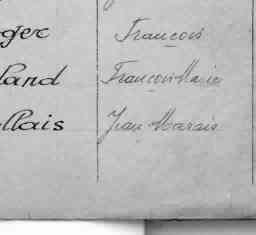 ger François
land François Marie
llais Jean Marais